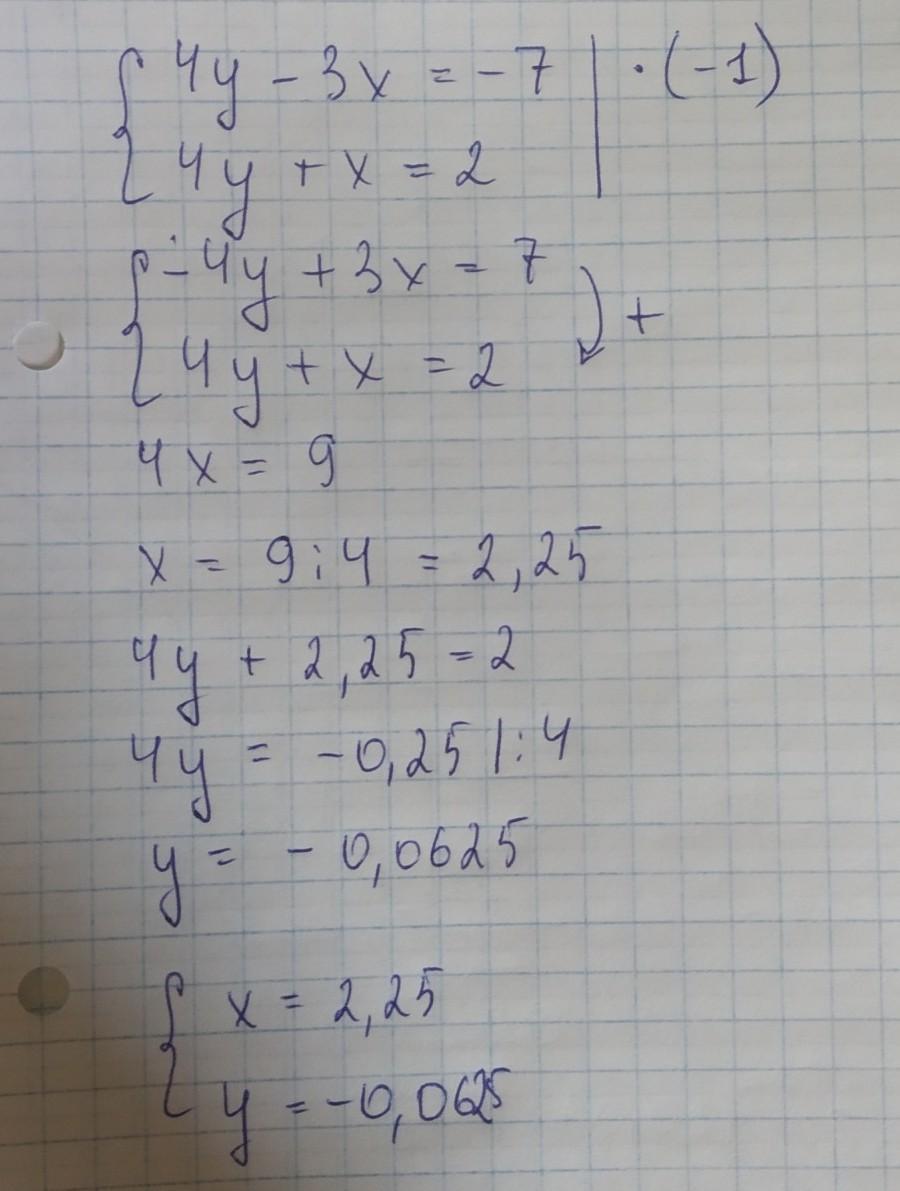 4y - 3x = -7 | · (-1)
4y + x = 2
-4y + 3x = 7
+
4y + x = 2
4x = 9
x = 9:4 = 2,25
4y + 2,25 = 2
4y = -0,25 |:4
y = -0,0625
x = 2,25
y = -0,0625